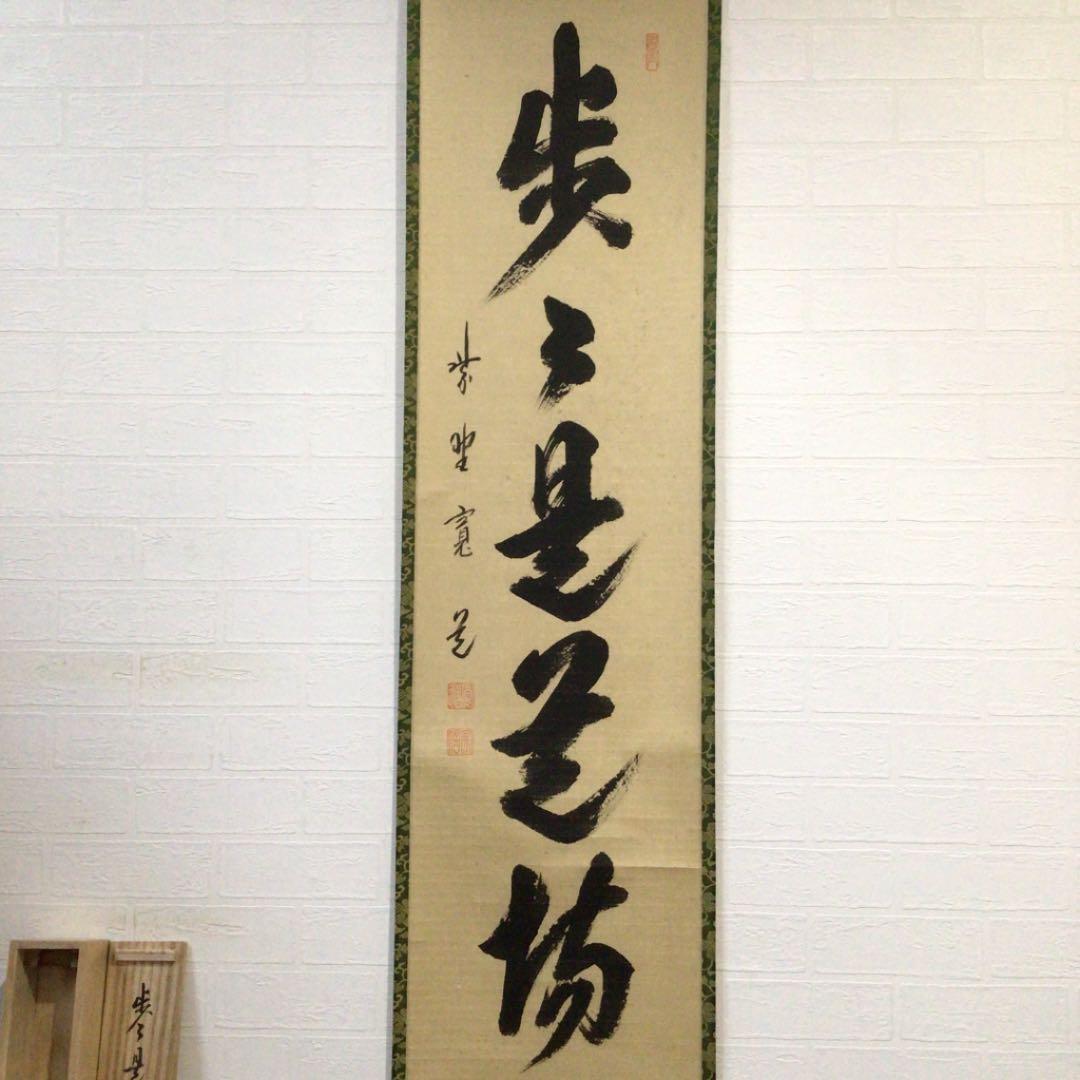 歩々是道場
紫野寛道
歩々是